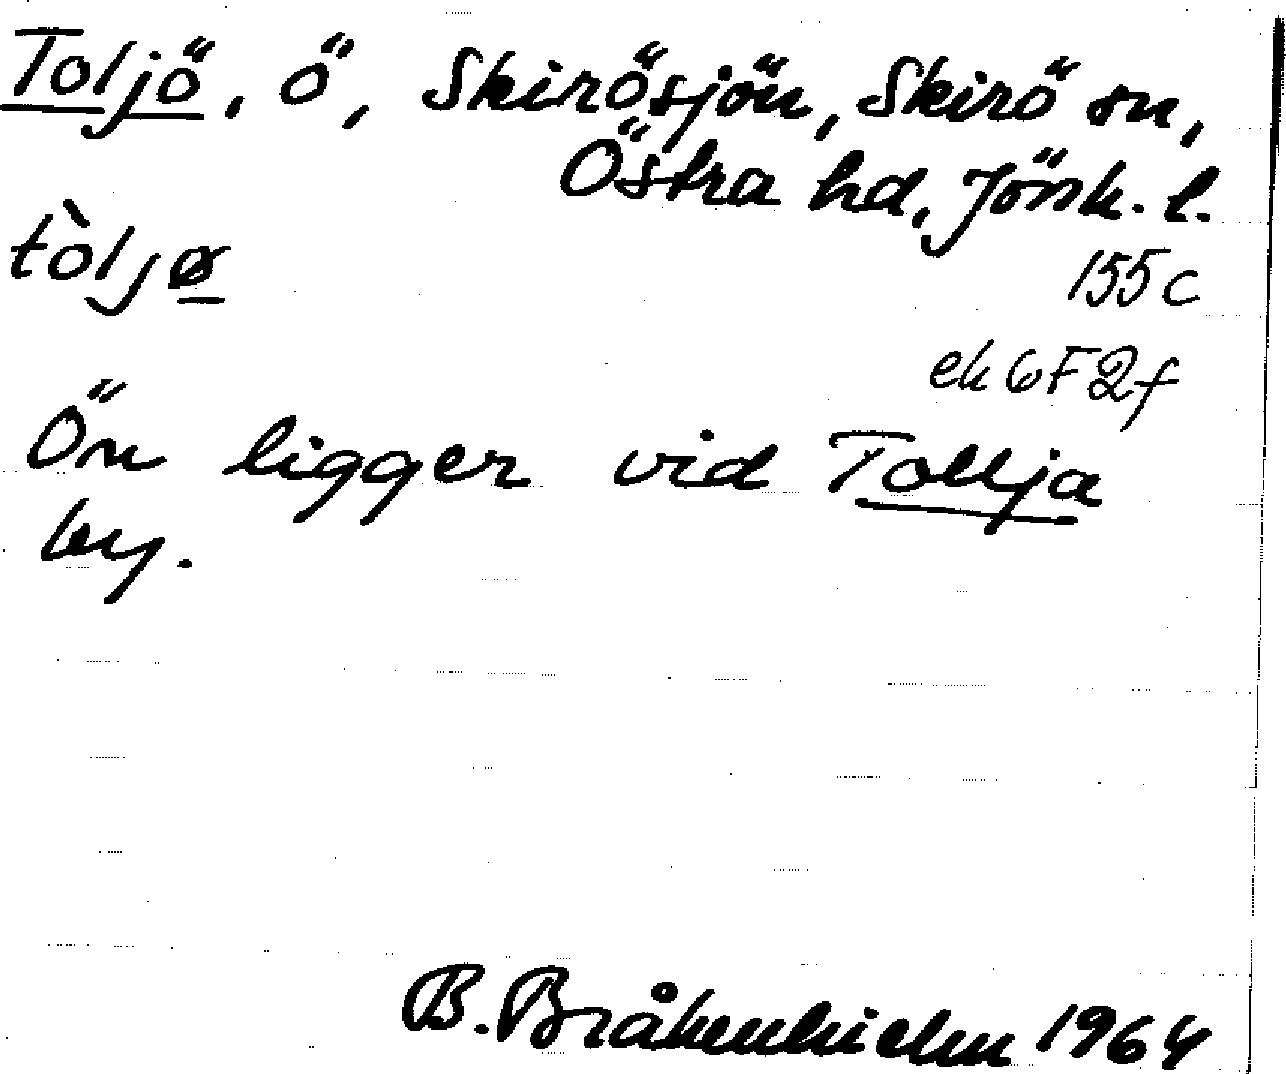 Toljö, ö, Skirösjön, Skirö sn,
Östra hd, Jönk. l.
tòljø
155 c
ek 6F2f
Ön ligger vid Tollja
by.
B. Bråkenhielm 1964